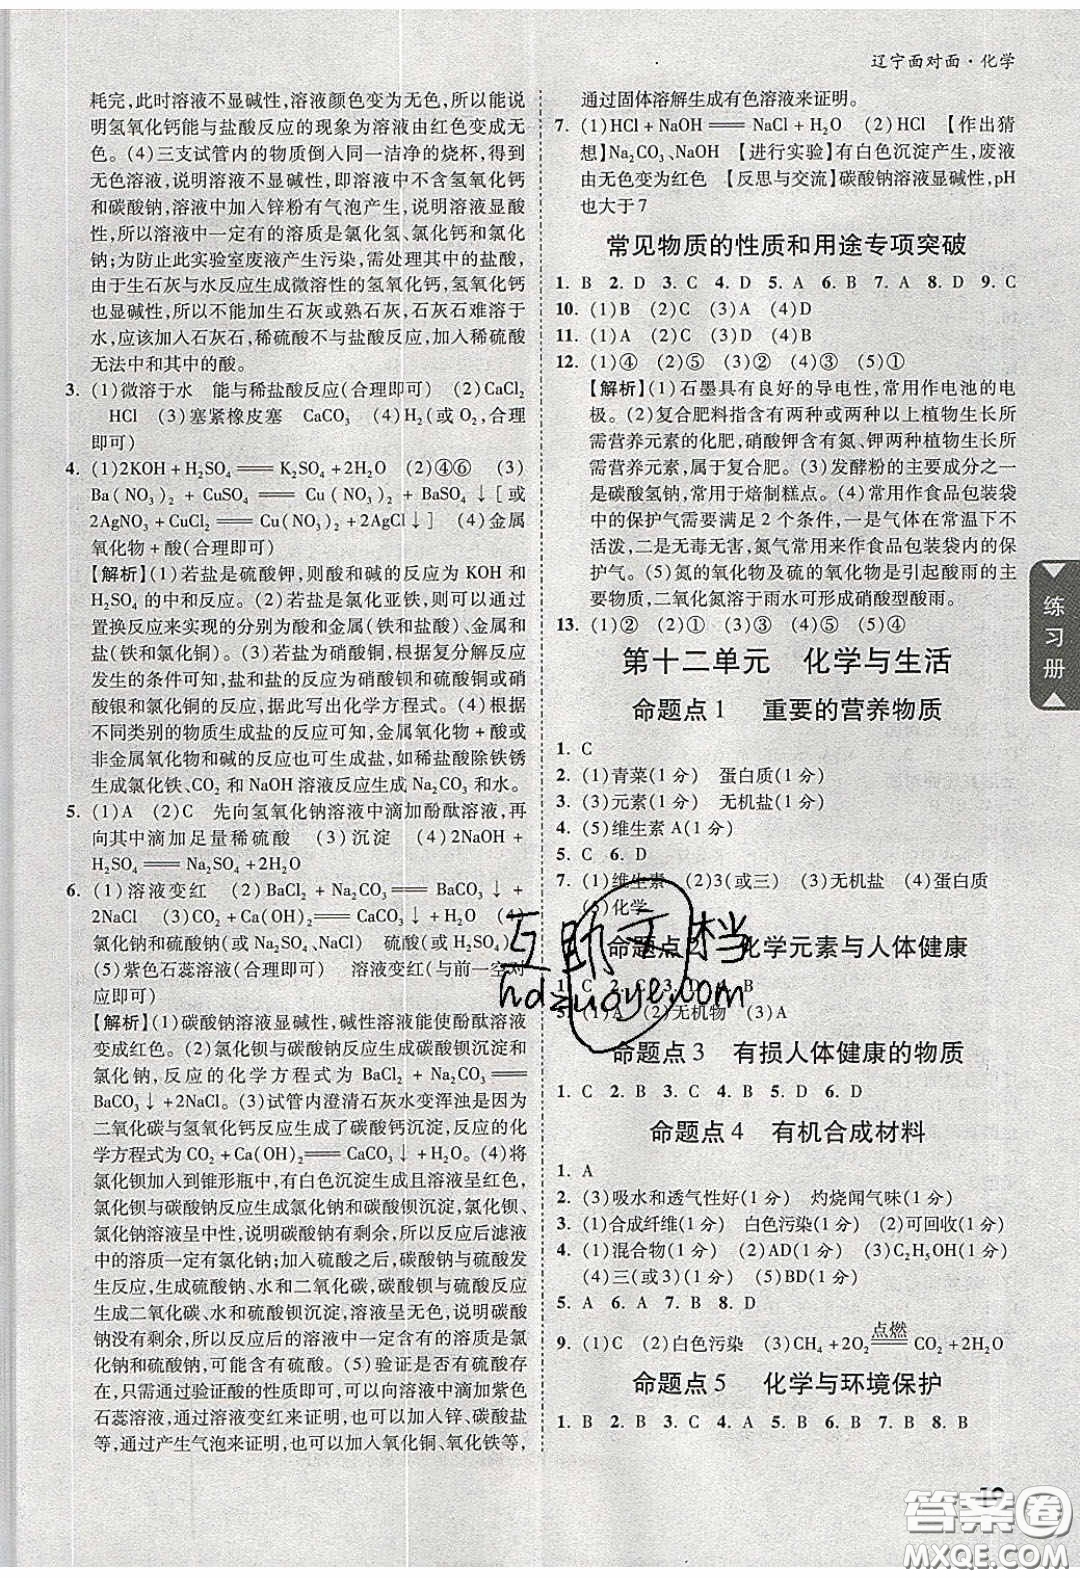 辽宁面对面·化学
耗完,此时溶液不显碱性,溶液颜色变为无色,所以能说
明氢氧化钙能与盐酸反应的现象为溶液由红色变成无
色。(4)三支试管内的物质倒入同一洁净的烧杯,得到
无色溶液,说明溶液不显碱性,即溶液中不含氢氧化钙
和碳酸钠,溶液中加入锌粉有气泡产生,说明溶液显酸
性,所以溶液中一定有的溶质是氯化氢、氯化钙和氯化
钠;为防止此实验室废液产生污染,需处理其中的盐酸,
由于生石灰与水反应生成微溶性的氢氧化钙,氢氧化钙
也显碱性,所以不能加生石灰或熟石灰,石灰石难溶于
水,应该加入石灰石,稀硫酸不与盐酸反应,加入稀硫酸
无法中和其中的酸。
3. (1)微溶于水 能与稀盐酸反应(合理即可) (2)CaCl₂
HCl (3)塞紧橡皮塞 CaCO₃ (4)H₂(或 O₂,合理
即可)
4. (1)2KOH + H₂SO₄ ══ K₂SO₄ + 2H₂O (2)④⑥ (3)
Ba(NO₃)₂ + CuSO₄ ══ Cu(NO₃)₂ + BaSO₄↓[或
2AgNO₃ + CuCl₂ ══ Cu(NO₃)₂ + 2AgCl↓] (4)金属
氧化物 + 酸(合理即可)
【解析】(1)若盐是硫酸钾,则酸和碱的反应为 KOH 和
H₂SO₄ 的中和反应。(2)若盐是氯化亚铁,则可以通过
置换反应来实现的分别为酸和金属(铁和盐酸)、金属和
盐(铁和氯化铜)。(3)若盐是硝酸铜,根据复分解反应
发生的条件可知,盐和盐的反应可以是硝酸钡和硫酸铜或硝
酸银和氯化铜的反应,据此写出化学方程式。(4)根据
不同类别的物质生成盐的反应可知,金属氧化物和酸或
非金属氧化物和碱的反应也可生成盐,如稀盐酸除铁锈
生成氯化铁、CO₂ 和 NaOH 溶液反应生成 Na₂CO₃ 和水。
5. (1)A (2)C 先向氢氧化钠溶液中滴加酚酞溶液,再
向其中滴加足量稀硫酸 (3)沉淀 (4)2NaOH +
H₂SO₄ ══ Na₂SO₄ + 2H₂O
6. (1)溶液变红 (2)BaCl₂ + Na₂CO₃ ══ BaCO₃↓ +
2NaCl (3)CO₂ + Ca(OH)₂ ══ CaCO₃↓ + H₂O (4)
氯化钠和硫酸钠(或 Na₂SO₄、NaCl) 硫酸(或 H₂SO₄)
(5)紫色石蕊溶液(合理即可) 溶液变红(与前一空对
应即可)
【解析】(1)碳酸钠溶液显碱性,碱性溶液能使酚酞溶液
变成红色。(2)氯化钡与碳酸钠反应生成碳酸钡沉淀和
氯化钠,反应的化学方程式为 BaCl₂ + Na₂CO₃ ══
BaCO₃↓ + 2NaCl。(3)试管内澄清石灰水变浑浊是因为
二氧化碳与氢氧化钙反应生成了碳酸钙沉淀,反应的化
学方程式为 CO₂ + Ca(OH)₂ ══ CaCO₃↓ + H₂O。(4)将
氯化钡加入到锥形瓶中,有白色沉淀生成溶液呈红色,
氯化钡与碳酸钠反应生成氯化钠和碳酸钡沉淀,氯化钡、
氯化钠溶液呈中性,说明碳酸钠有剩余,所以反应后溶液
中的溶质一定有氯化钠;加入硫酸之后,碳酸钠与硫酸反应
发生反应,生成硫酸钠、水和二氧化碳,碳酸钡与硫酸反应
生成二氧化碳、水和硫酸钡沉淀,溶液呈无色,说明碳酸
钠没有剩余,所以反应后的溶液中一定含有的溶质是氯
化钠和硫酸钠,可能含有硫酸。(5)验证是否有硫酸存
在,只需通过验证酸的性质即可,可以向溶液中滴加紫色
石蕊溶液,溶液变红来证明,也可以加入锌、碳酸盐
等,通过产生气泡来证明,也可以加入氧化铜、氧化铁等,
通过固体溶解生成有色溶液来证明。
7. (1)HCl + NaOH ══ NaCl + H₂O (2)HCl 【作出猜
想】Na₂CO₃、NaOH 【进行实验】有白色沉淀产生,废液
由无色变为红色 【反思与交流】碳酸钠溶液显碱性,pH
也大于 7
常见物质的性质和用途专项突破
1. B 2. D 3. C 4. D 5. A 6. B 7. A 8. D 9. C
10. (1)B (2)C (3)A (4)D
11. (1)A (2)C (3)D (4)B
12. (1)④ (2)⑤ (3)② (4)③ (5)①
【解析】(1)石墨具有良好的导电性,常用作电池的电
极。(2)复合肥料指含有两种或两种以上植物生长所
需营养元素的化肥,硝酸钾含有氮、钾两种植物生长所
需营养元素,属于复合肥。(3)发酵粉的主要成分之一
是碳酸氢钠,常用于焙制糕点。(4)常用作食品包装袋
中的保护气需要满足 2 个条件,一是气体在常温下不
活泼,二是无毒无害,氮气常用来作食品包装袋内的保
护气。(5)氮的氧化物及硫的氧化物是引起酸雨的主
要物质,二氧化氮溶于雨水可形成硝酸型酸雨。
13. (1)② (2)① (3)③ (4)④ (5)⑤
第十二单元 化学与生活
命题点 1 重要的营养物质
1. C
2. (1)青菜(1 分) 蛋白质(1 分)
3. (3)元素(1 分) 无机盐(1 分)
4. (5)维生素 A(1 分)
5. C 6. D
7. (1)维生素 (2)3(或三) (3)无机盐 (4)蛋白质
(5)化学
命题点 2 化学元素与人体健康
1. C 2. C 3. D 4. B
5. (1)A (2)无机物 (3)A
命题点 3 有损人体健康的物质
1. C 2. B 3. B 4. B 5. D 6. D
命题点 4 有机合成材料
1. A
2. (3)吸水和透气性好(1 分) 灼烧闻气味(1 分)
3. (1)合成纤维(1 分) 白色污染(1 分) (2)可回收(1 分)
4. (1)混合物(1 分) (2)AC(1 分) (3)C₂H₅OH(1 分)
(4)三(或 3)(1 分) (5)BD(1 分)
5. A 6. A 7. B 8. D
9. (1)C (2)白色污染 (3)CH₄ + 2O₂ ═点燃═ CO₂ + 2H₂O
命题点 5 化学与环境保护
1. B 2. B 3. B 4. A 5. B 6. B 7. B 8. B
练习册
互助文档
hdzuoye.com
19
答案圈
MXQE.COM